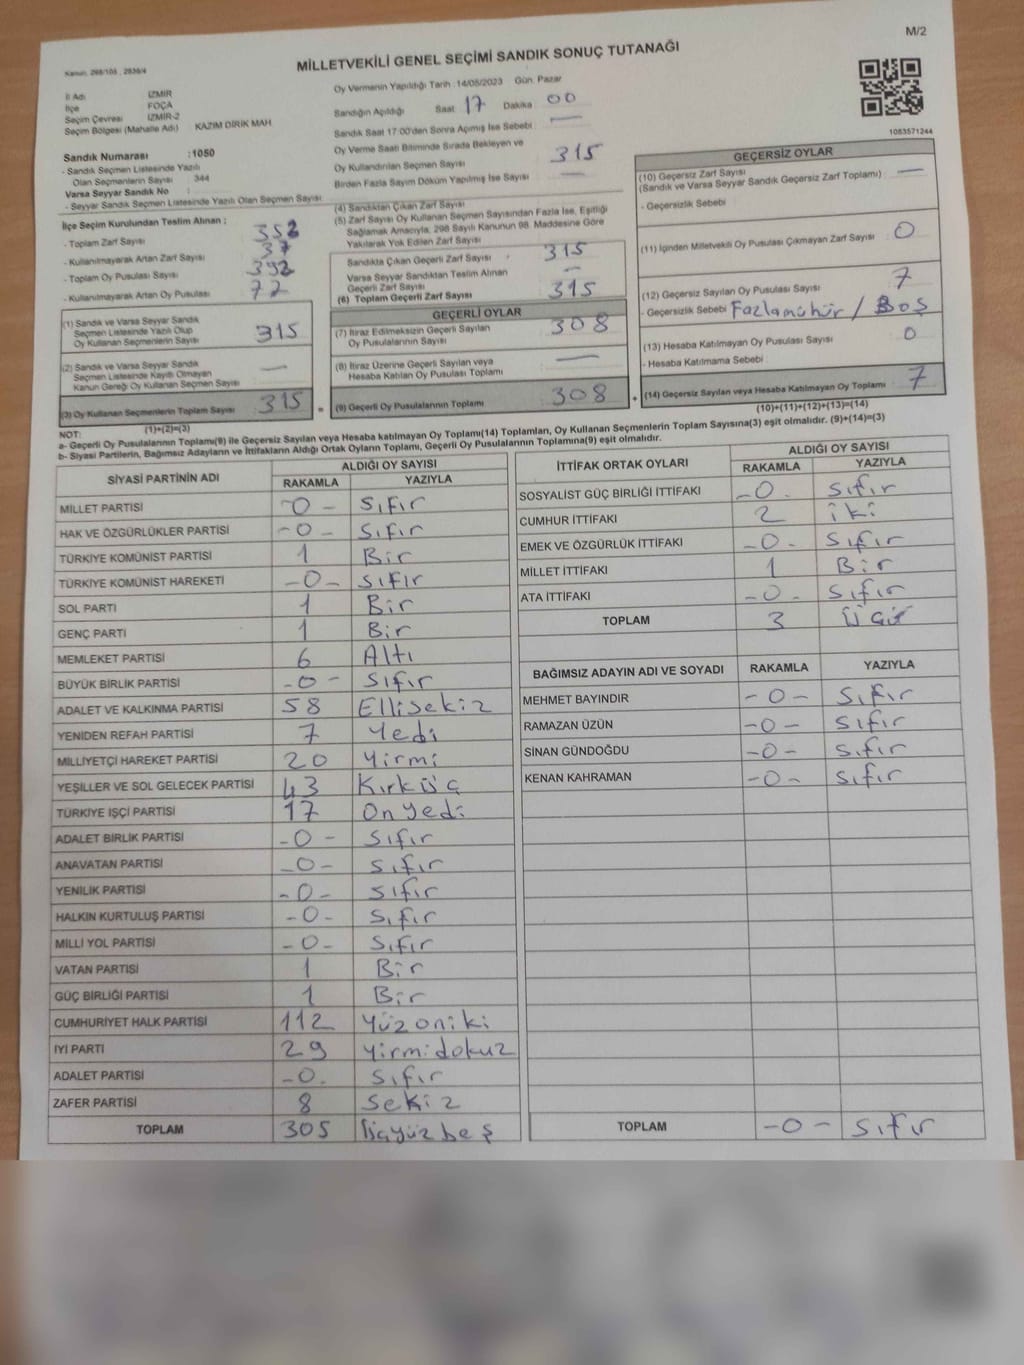 M/2
Kanun: 298/105 , 2839/4
MİLLETVEKİLİ GENEL SEÇİMİ SANDIK SONUÇ TUTANAĞI
İl Adı İZMİR
İlçe FOÇA
Seçim Çevresi İZMİR-2
Seçim Bölgesi (Mahalle Adı) KAZIM DİRİK MAH
Sandık Numarası :1050
- Sandık Seçmen Listesinde Yazılı
Olan Seçmenlerin Sayısı : 344
Varsa Seyyar Sandık No :
- Seyyar Sandık Seçmen Listesinde Yazılı Olan Seçmen Sayısı:
Oy Vermenin Yapıldığı Tarih :14/05/2023 Gün: Pazar
Sandığın Açıldığı Saat 17 Dakika 00
Sandık Saat 17:00'den Sonra Açılmış İse Sebebi : —
Oy Verme Saati Bitiminde Sırada Bekleyen ve
Oy Kullandırılan Seçmen Sayısı 315
Birden Fazla Sayım Döküm Yapılmış İse Sayısı —
1083571244
İlçe Seçim Kurulundan Teslim Alınan :
- Toplam Zarf Sayısı 352
- Kullanılmayarak Artan Zarf Sayısı 37
- Toplam Oy Pusulası Sayısı 392
- Kullanılmayarak Artan Oy Pusulası 77
(1) Sandık ve Varsa Seyyar Sandık
Seçmen Listesinde Yazılı Olup
Oy Kullanan Seçmenlerin Sayısı 315
(2) Sandık ve Varsa Seyyar Sandık
Seçmen Listesinde Kayıtlı Olmayan
Kanun Gereği Oy Kullanan Seçmen Sayısı —
(3) Oy Kullanan Seçmenlerin Toplam Sayısı 315
(1)+(2)=(3)
(4) Sandıktan Çıkan Zarf Sayısı
(5) Zarf Sayısı Oy Kullanan Seçmen Sayısından Fazla İse, Eşitliği
Sağlamak Amacıyla, 298 Sayılı Kanunun 98. Maddesine Göre
Yakılarak Yok Edilen Zarf Sayısı
Sandıkta Çıkan Geçerli Zarf Sayısı 315
Varsa Seyyar Sandıktan Teslim Alınan
Geçerli Zarf Sayısı —
(6) Toplam Geçerli Zarf Sayısı 315
GEÇERLİ OYLAR
(7) İtiraz Edilmeksizin Geçerli Sayılan
Oy Pusulasının Sayısı 308
(8) İtiraz Üzerine Geçerli Sayılan veya
Hesaba Katılan Oy Pusulası Toplamı —
= (9) Geçerli Oy Pusulalarının Toplamı 308
GEÇERSİZ OYLAR
(10) Geçersiz Zarf Sayısı
(Sandık ve Varsa Seyyar Sandık Geçersiz Zarf Toplamı) : —
- Geçersizlik Sebebi
(11) İçinden Milletvekili Oy Pusulası Çıkmayan Zarf Sayısı : 0
(12) Geçersiz Sayılan Oy Pusulası Sayısı : 7
- Geçersizlik Sebebi Fazlamühür / Boş
(13) Hesaba Katılmayan Oy Pusulası Sayısı : 0
- Hesaba Katılmama Sebebi :
+ (14) Geçersiz Sayılan veya Hesaba Katılmayan Oy Toplamı 7
(10)+(11)+(12)+(13)=(14)
NOT:
a- Geçerli Oy Pusulalarının Toplamı(9) ile Geçersiz Sayılan veya Hesaba katılmayan Oy Toplamı(14) Toplamları, Oy Kullanan Seçmenlerin Toplam Sayısına(3) eşit olmalıdır. (9)+(14)=(3)
b- Siyasi Partilerin, Bağımsız Adayların ve İttifakların Aldığı Ortak Oyların Toplamı, Geçerli Oy Pusulalarının Toplamına(9) eşit olmalıdır.
SİYASİ PARTİNİN ADI ALDIĞI OY SAYISI
RAKAMLA YAZIYLA
MİLLET PARTİSİ -0- Sıfır
HAK VE ÖZGÜRLÜKLER PARTİSİ -0- Sıfır
TÜRKİYE KOMÜNİST PARTİSİ 1 Bir
TÜRKİYE KOMÜNİST HAREKETİ -0- Sıfır
SOL PARTİ 1 Bir
GENÇ PARTİ 1 Bir
MEMLEKET PARTİSİ 6 Altı
BÜYÜK BİRLİK PARTİSİ -0- Sıfır
ADALET VE KALKINMA PARTİSİ 58 Ellisekiz
YENİDEN REFAH PARTİSİ 7 Yedi
MİLLİYETÇİ HAREKET PARTİSİ 20 Yirmi
YEŞİLLER VE SOL GELECEK PARTİSİ 43 Kırküç
TÜRKİYE İŞÇİ PARTİSİ 17 Onyedi
ADALET BİRLİK PARTİSİ -0- Sıfır
ANAVATAN PARTİSİ -0- Sıfır
YENİLİK PARTİSİ -0- Sıfır
HALKIN KURTULUŞ PARTİSİ -0- Sıfır
MİLLİ YOL PARTİSİ -0- Sıfır
VATAN PARTİSİ 1 Bir
GÜÇ BİRLİĞİ PARTİSİ 1 Bir
CUMHURİYET HALK PARTİSİ 112 Yüzoniki
İYİ PARTİ 29 Yirmidokuz
ADALET PARTİSİ -0- Sıfır
ZAFER PARTİSİ 8 Sekiz
TOPLAM 305 Üçyüzbeş
İTTİFAK ORTAK OYLARI ALDIĞI OY SAYISI
RAKAMLA YAZIYLA
SOSYALİST GÜÇ BİRLİĞİ İTTİFAKI -0- Sıfır
CUMHUR İTTİFAKI 2 iki
EMEK VE ÖZGÜRLÜK İTTİFAKI -0- Sıfır
MİLLET İTTİFAKI 1 Bir
ATA İTTİFAKI -0- Sıfır
TOPLAM 3 Üç
BAĞIMSIZ ADAYIN ADI VE SOYADI RAKAMLA YAZIYLA
MEHMET BAYINDIR -0- Sıfır
RAMAZAN ÜZÜN -0- Sıfır
SİNAN GÜNDOĞDU -0- Sıfır
KENAN KAHRAMAN -0- Sıfır
TOPLAM -0- Sıfır